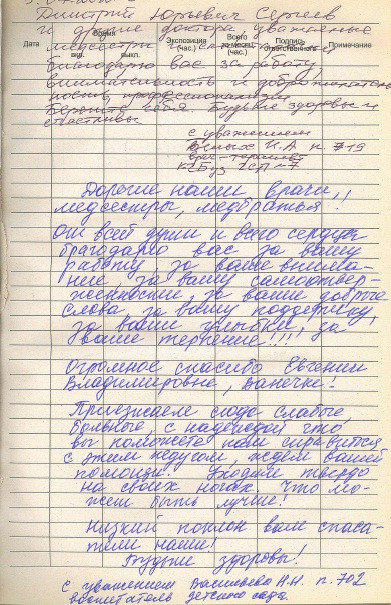 Дмитрий Юрьевич Сергеев
и другие доктора уважаемые
медсестры
благодарю вас за работу,
внимательность и доброжелатель
ность, профессионализм
Берегите себя. Будьте здоровы и
счастливы
Дата
вкл.
выкл.
Экспозиция (час.)
Всего за месяц (час.)
Подпись ответственного
Примечание
с уважением
Н.А п. 719
врач-терапевт
Дорогие наши врачи,
медсестры, медбратья!
От всей души и всего сердца
благодарю вас за вашу
работу, за ваше внима-
ние за вашу самоотвер-
женность, за ваши добрые
слова, за вашу поддержку,
за ваши улыбки, за
ваше терпение!!!
Огромное спасибо Евгении
Владимировне, Ванечке!
Приезжаем сюда слабые,
больные, с надеждой что
вы поможете нам справится
с этим недугом, ждем вашей
помощи. Уходим твердо
на своих ногах. Что мо-
жет быть лучше!
Низкий поклон вам спаса-
тели наши!
Будьте здоровы!
с уважением Васильева Н.Н. п. 702
воспитатель детского сада.